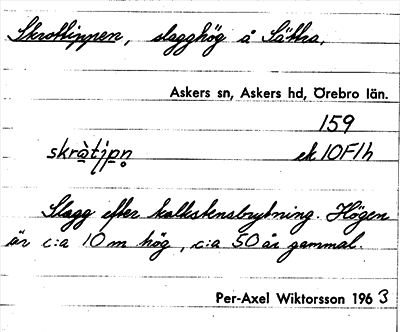 Skrottippen, slagghög å Sättra.
Askers sn, Askers hd, Örebro län.
159
skràtipn̥ ek 10F1h
Slagg efter kalkstensbrytning. Högen
är c:a 10 m hög, c:a 50 år gammal.
Per-Axel Wiktorsson 1963